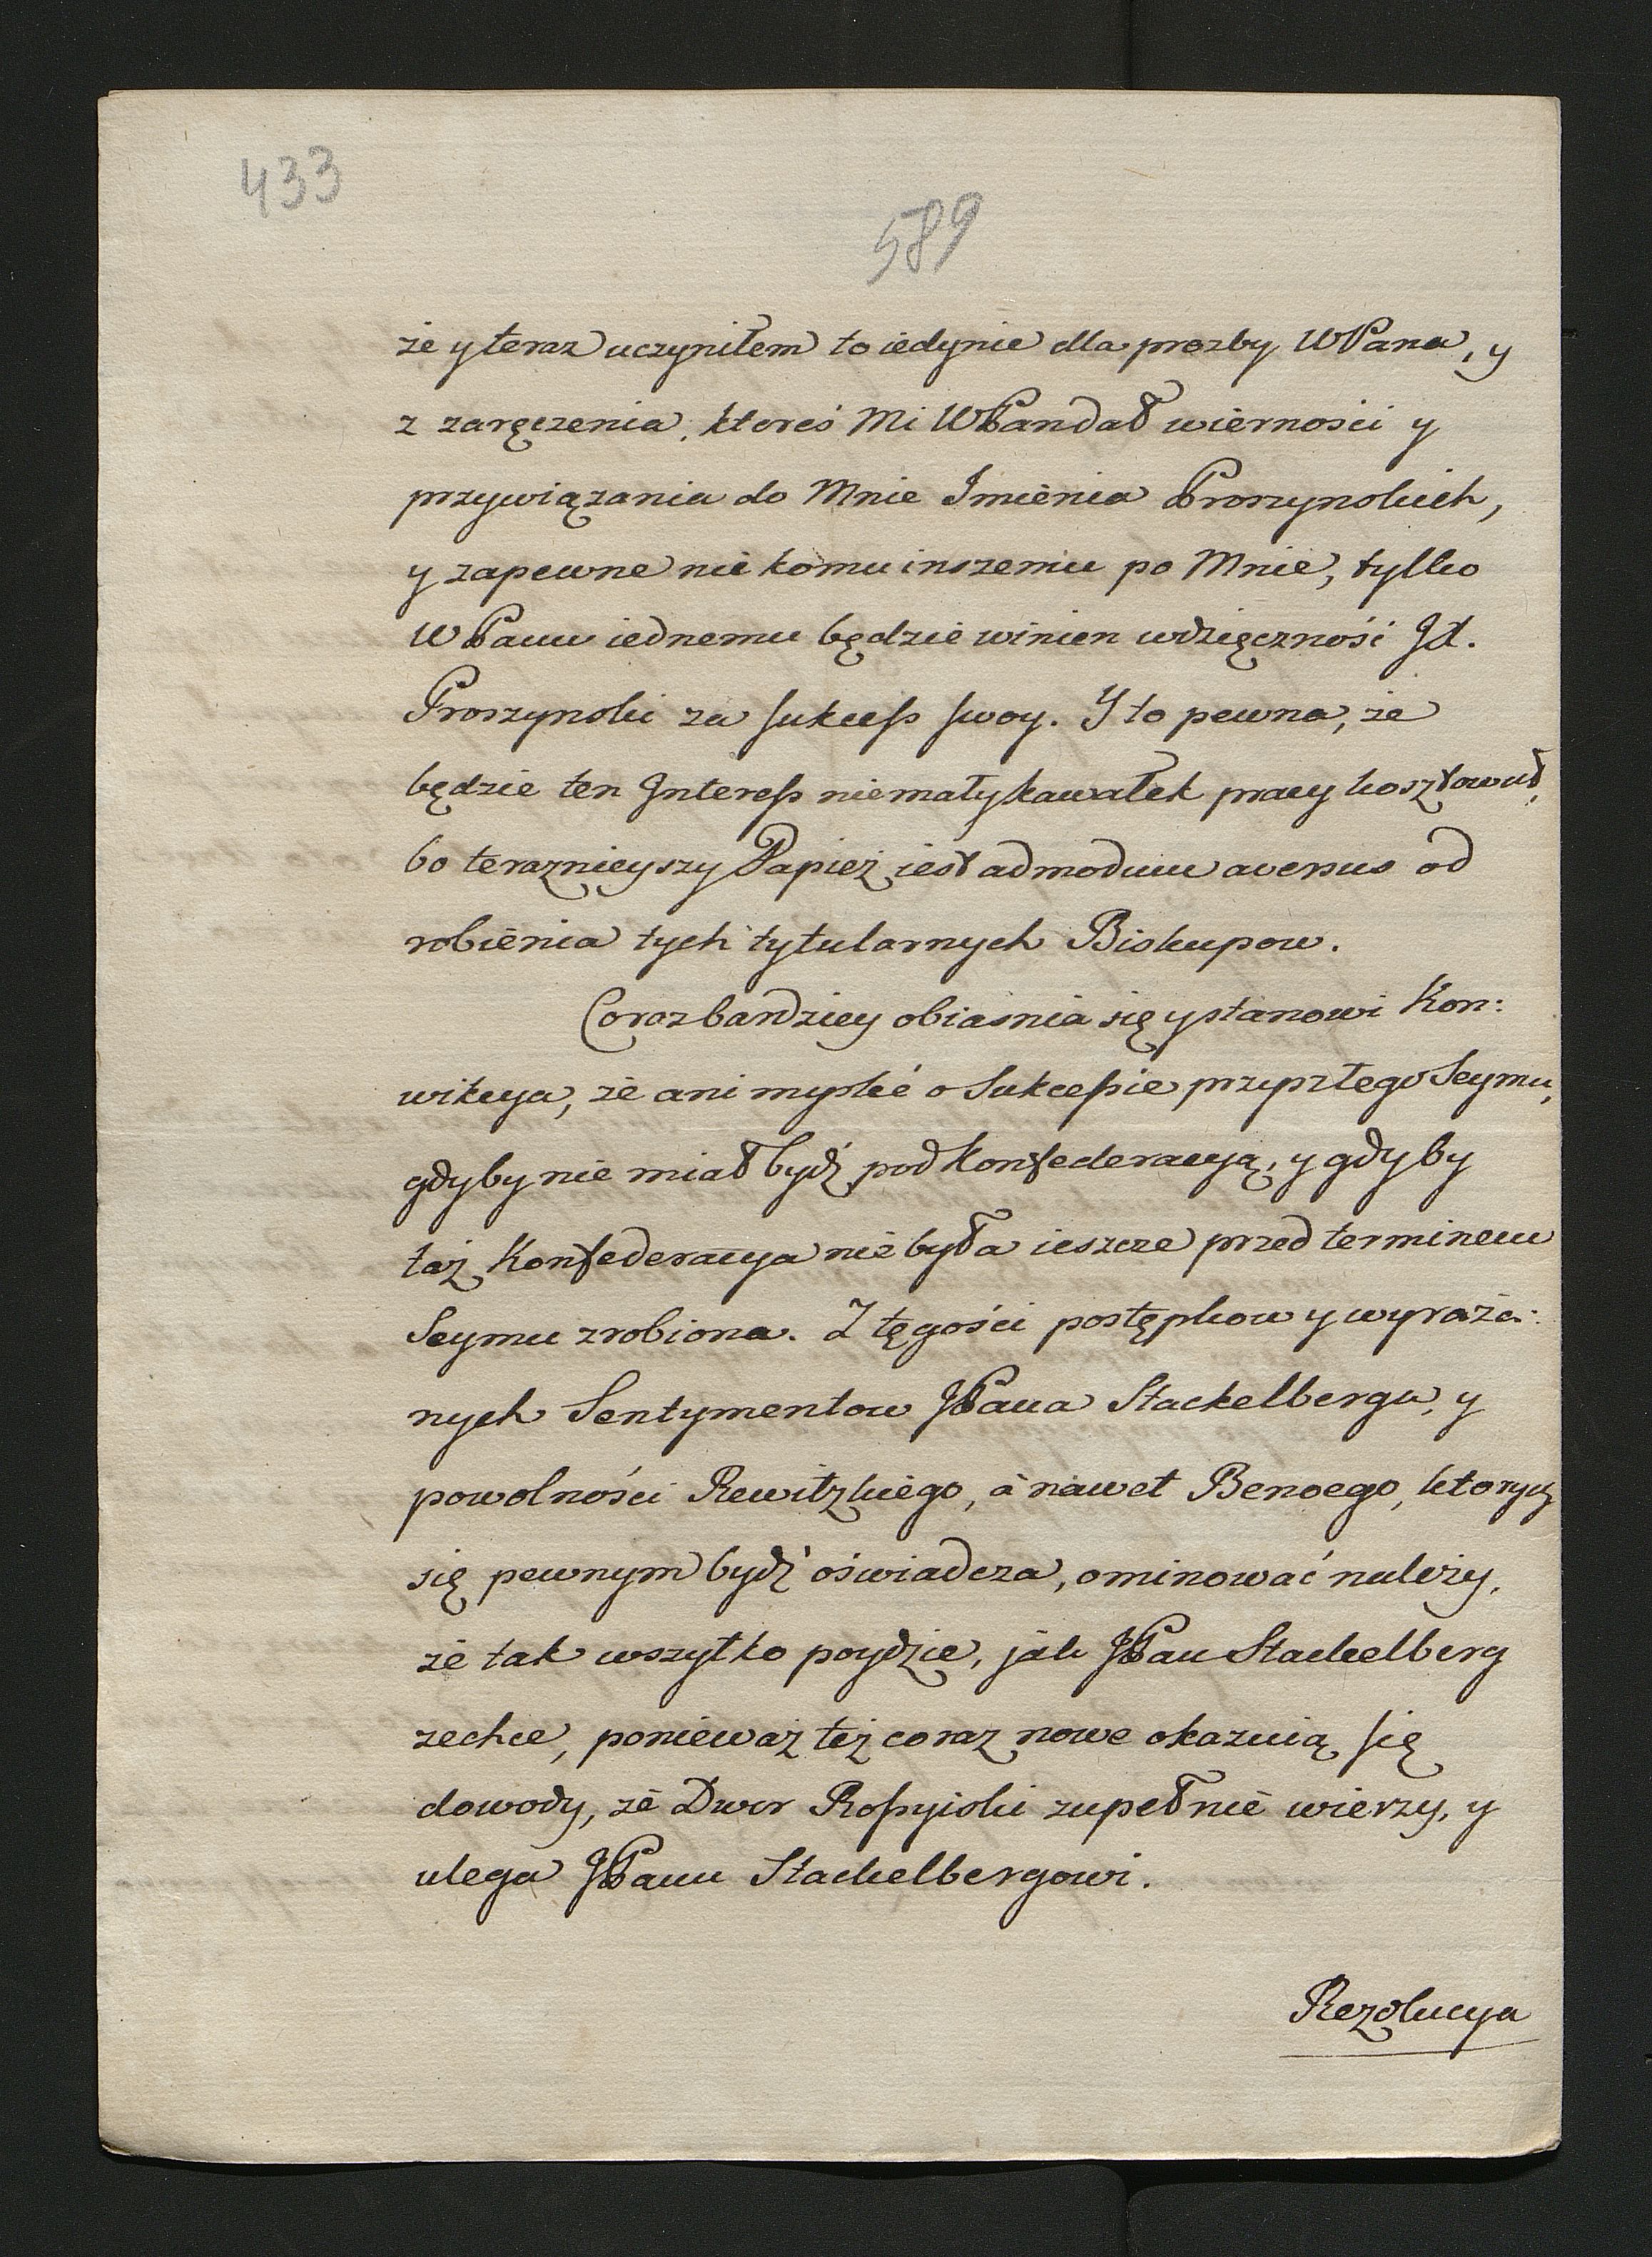 433
589
że y teraz uczyniłem to iedynie dla prozby WPana, y
z zaręczenia, ktoreś Mi WPan dał wierności y
przywiązania do Mnie Imienia Proszynskich,
y zapewne nie komu inszemu po Mnie, tylko
WPanu iednemu będzie winien wdzięczność JX.
Proszynski za sukceſs swoy. Y to pewna, że
będzie ten Jntereſs niemały kawałek pracy kosztował,
bo teraznieyszy Papież iest admodum aversus od
robienia tych tytularnych Biskupow.
Coraz bardziey obiasnia się y stanowi Kon:
wikcya, że ani myslić o Sukceſsie przyszłego Seymu,
gdyby nie miał bydź pod Konfederacyą, y gdyby
taż Konfederacya nie była ieszcze przed terminem
Seymu zrobiona. Z tęgości postępkow y wyrażo:
nych Sentymentow JPana Stackelberga, y
powolności Rewitzkiego, á nawet Benoego, ktorych
się pewnym bydź oświadcza, ominować należy,
że tak wszytko poydzie, jak JPan Stackelberg
zechce, ponieważ też coraz nowe okazuią się
dowody, że Dwor Roſsyiski zupełnie wierzy, y
ulega JPanu Stackelbergowi.
Rezolucya